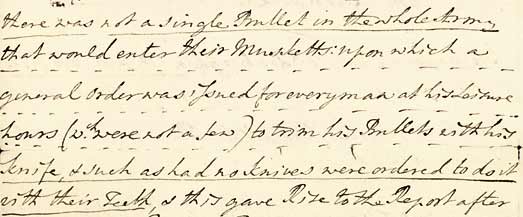 there was not a single Bullet in the whole Army
that would enter their Musketts: upon which a
general order was issued for every man at his Leisure
hours (wh were not a few) to trim his Bullets with his
Knife, & such as had no Knives were ordered to do it
with their Teeth, & this gave Rise to the Report after